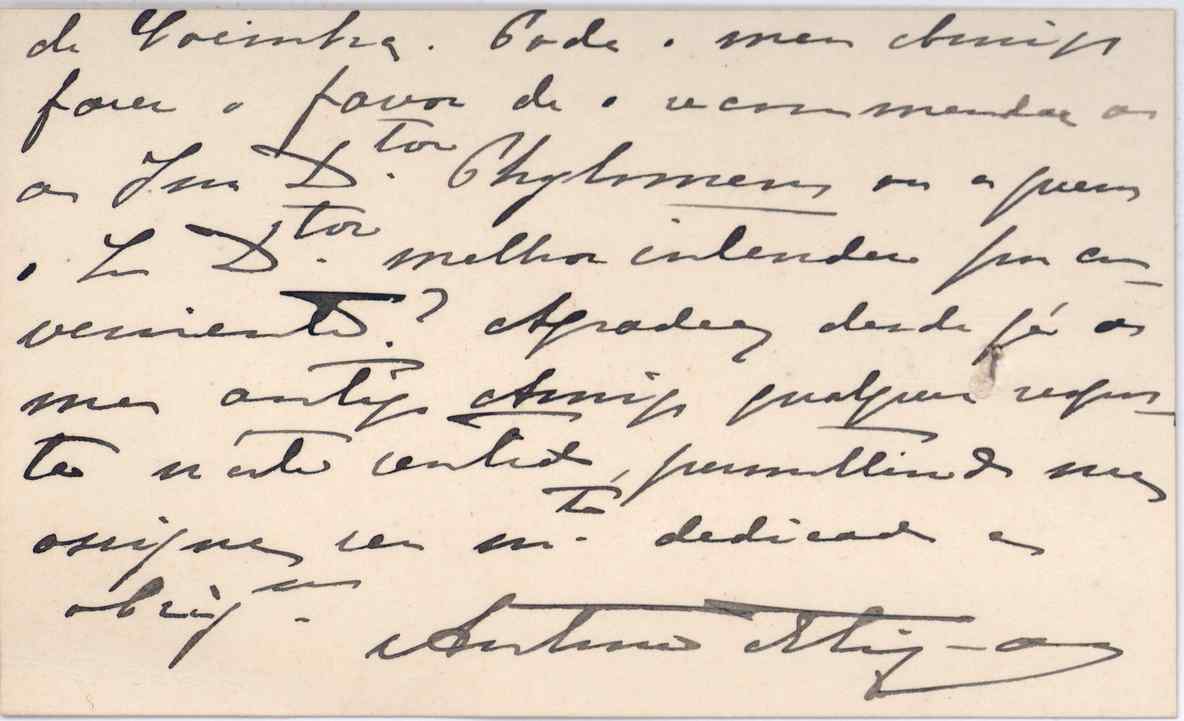 de Coimbra. Pode o meu Amigo
fazer o favor de o recommendar ao
ao Snr. D.tor Phylomeno ou a quem
o Snr. D.tor melhor intender por con-
veniente? Agradeço desde já ao
meu antigo Amigo qualquer respos-
ta n'este sentido, permittindo me
assigne seu m.to dedicado e
obrig.mo
Antonio